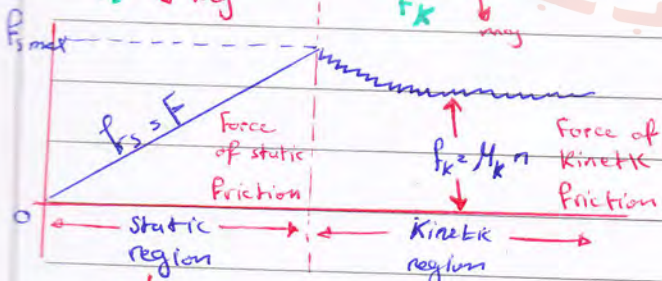 mg
fK
mg
fs max
fs = F
Force
of static
friction
fK = μK n
Force of
Kinetic
friction
0
Static
region
Kinetic
region